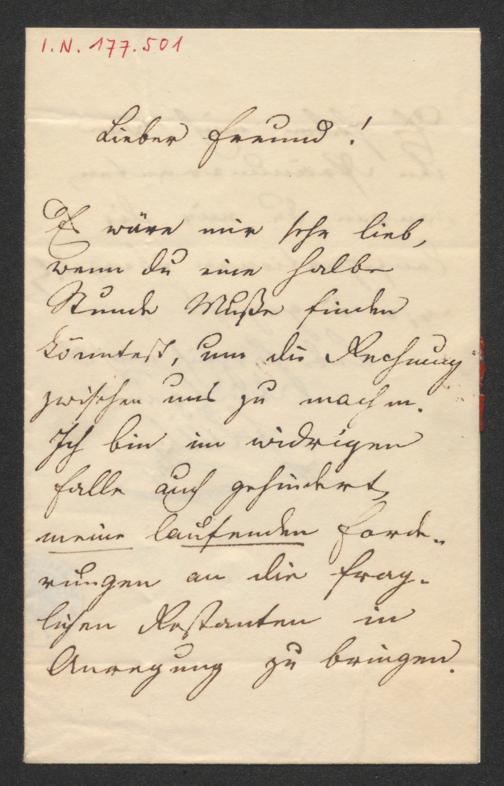 I.N. 177.501
Lieber Freund!
Es wäre mir sehr lieb,
wenn du eine halbe
Stunde Muße finden
könntest, um die Rechnung
zwischen uns zu machen.
Ich bin im widrigen
Falle auch gehindert,
meine laufenden Forde-
rungen an die frag-
lichen Restanten in
Anregung zu bringen.